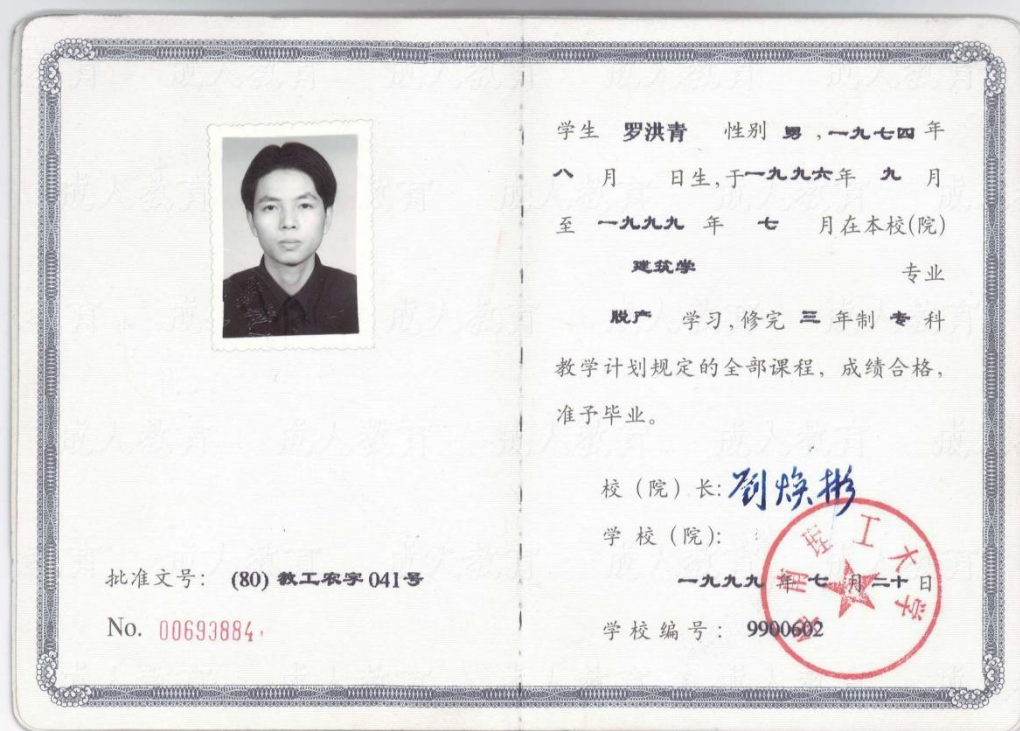 批准文号: (80) 教工农字 041号
No. 00693884
学生 罗洪青 性别 男 ,一九七四 年
八 月 日生,于一九九六年 九 月
至 一九九九 年 七 月在本校(院)
建筑学 专业
脱产 学习,修完 三 年制 专 科
教学计划规定的全部课程, 成绩合格,
准予毕业。
校(院)长: 刘焕彬
学校(院):
华南理工大学
一九九九 年 七 月 二十 日
学校编号: 9900602
成人教育